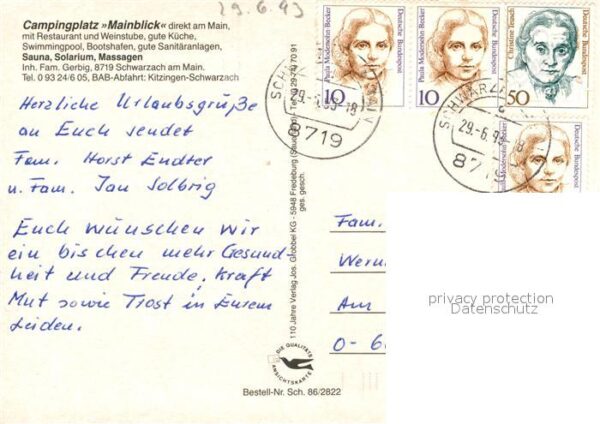 29.6.93
Campingplatz »Mainblick« direkt am Main,
mit Restaurant und Weinstube, gute Küche,
Swimmingpool, Bootshafen, gute Sanitäranlagen,
Sauna, Solarium, Massagen
Inh. Fam. Gerbig, 8719 Schwarzach am Main.
Tel. 0 93 24/6 05, BAB-Abfahrt: Kitzingen-Schwarzach
Herzliche Urlaubsgrüße
an Euch sendet
Fam. Horst Endter
u. Fam. Jan Solbrig
Euch wünschen wir
ein bischen mehr Gesund
heit und Freude, Kraft
Mut sowie Trost in Eurem
Leiden.
110 Jahre Verlag Jos. Grobbel KG - 5948 Fredeburg
ges. gesch.
DIE QUALITÄTS
ANSICHTSKARTE
Bestell-Nr. Sch. 86/2822
Paula Modersohn-Becker
Deutsche Bundespost
10
Paula Modersohn-Becker
Deutsche Bundespost
10
Christine Teusch
Deutsche Bundespost
50
Deutsche Bundespost
8719
SCHWARZA
29.-6.93
Fam.
Wern
Am
0-6
privacy protection
Datenschutz